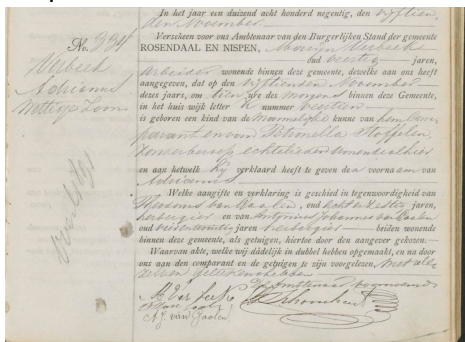 In het jaar een duizend acht honderd negentig, den vijftien
den November
Verscheen voor ons Ambtenaar van den Burgerlijken Stand der gemeente
ROSENDAAL EN NISPEN, Marijn Verbeek
oud veertig jaren,
arbeider wonende binnen deze gemeente, dewelke aan ons heeft
aangegeven, dat op den vijftienden November
dezes jaars, om tien ure des morgens binnen deze Gemeente,
in het huis wijk letter nummer veertien
is geboren een kind van de mannelijke kunne van hem Com-
parant en van Petronella Stoffelen,
zonder beroep echtelieden wonende alhier
en aan hetwelk hij verklaard heeft te geven den voornaam van
Adrianus
Welke aangifte en verklaring is geschied in tegenwoordigheid van
van Gaalen, oud acht en zestig jaren,
herbergier en van Antonius Johannes van Gaalen
oud jaren herbergier beiden wonende
binnen deze gemeente, als getuigen, hiertoe door den aangever gekozen.
Waarvan akte, welke wij dadelijk in dubbel hebben opgemaakt, en na door
ons aan den comparant en de getuigen te zijn voorgelezen, met alle
zelven geteekend hebben
De Ambtenaar voornoemd
M Verbeek
A. J. van Gaalen
No. 334
Verbeek
Adrianus
wettige Zoon